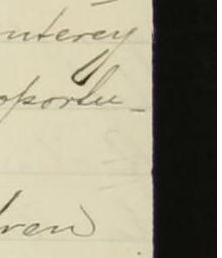 onterey
pportu_
ren